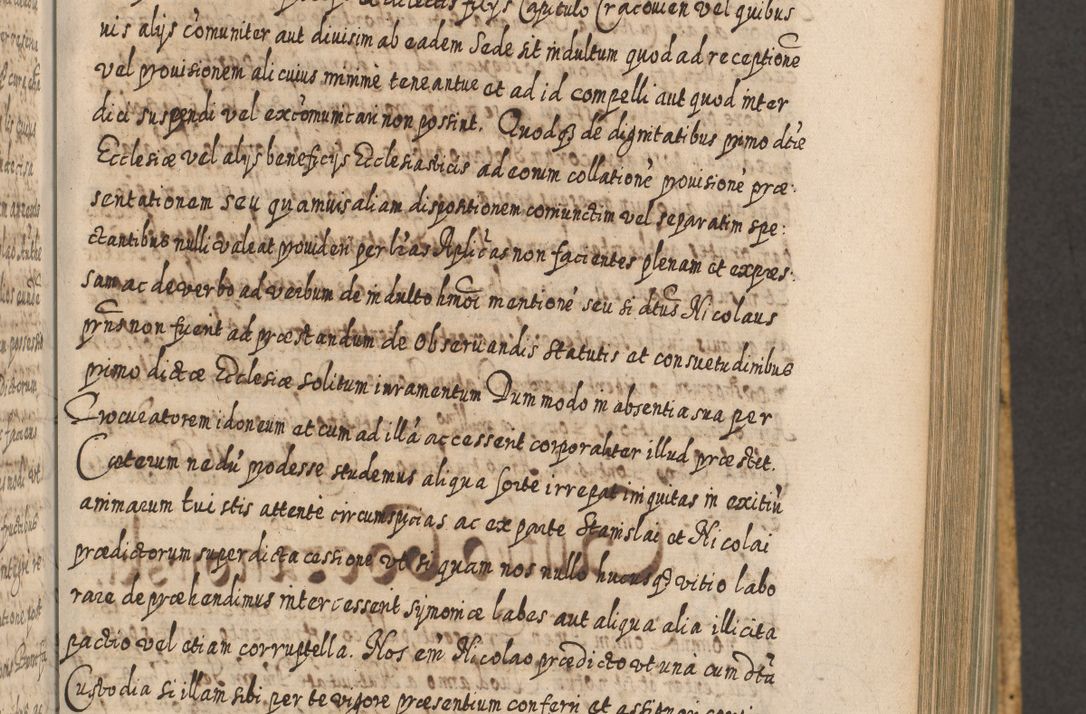 dilectis filijs Capitulo Cracouien vel quibus
uis alijs cõmuniter aut diuisim ab eadem Sede sit indultum quod ad receptionẽ
vel prouisionem alicuius minimè teneantur et ad id compelli aut quod inter
dici suspendi vel excõmunicari non possint. Quodq̃ de dignitatibus primo dictẽ
Ecclesiæ vel alijs beneficijs Ecclesiasticis ad eorum collationẽ prouisionẽ præ:
sentationem seu quamuis aliam dispositionem coniunctim vel separatim spe:
ctantibus nulli valeat prouideri per lr̃as Aplicas non facientes plenam et expres:
sam ac de verbo ad verbum de indulto hmõi mentionẽ seu si dtus Nicolaus
prn̄s non fuerit ad præstandum de obseruandis statutis et consuetudinibus
primo dictæ Ecclesiæ solitum iuramentum Dummodo in absentia sua per
Procuratorem idoneum et cum ad illã accesserit corporaliter illud præstet.
Cæterum nedũ prodesse studemus aliqua sortè irrepat iniquitas in exitiũ
animarum tui istis attentè circumspicias ac ex parte Stanislai et Nicolai
prædictorum super dicta cessione ut si quam nos nullo hucusq̃ vitio labo
rare deprehendimus intercesserit symoniæ labes aut aliqua alia illicita
pactio vel etiam corruptella. Nos em̃ Nicolao prædicto ut unà cum dtã
Custodia si illam sibi per te vigore præsentium conferri et assignari